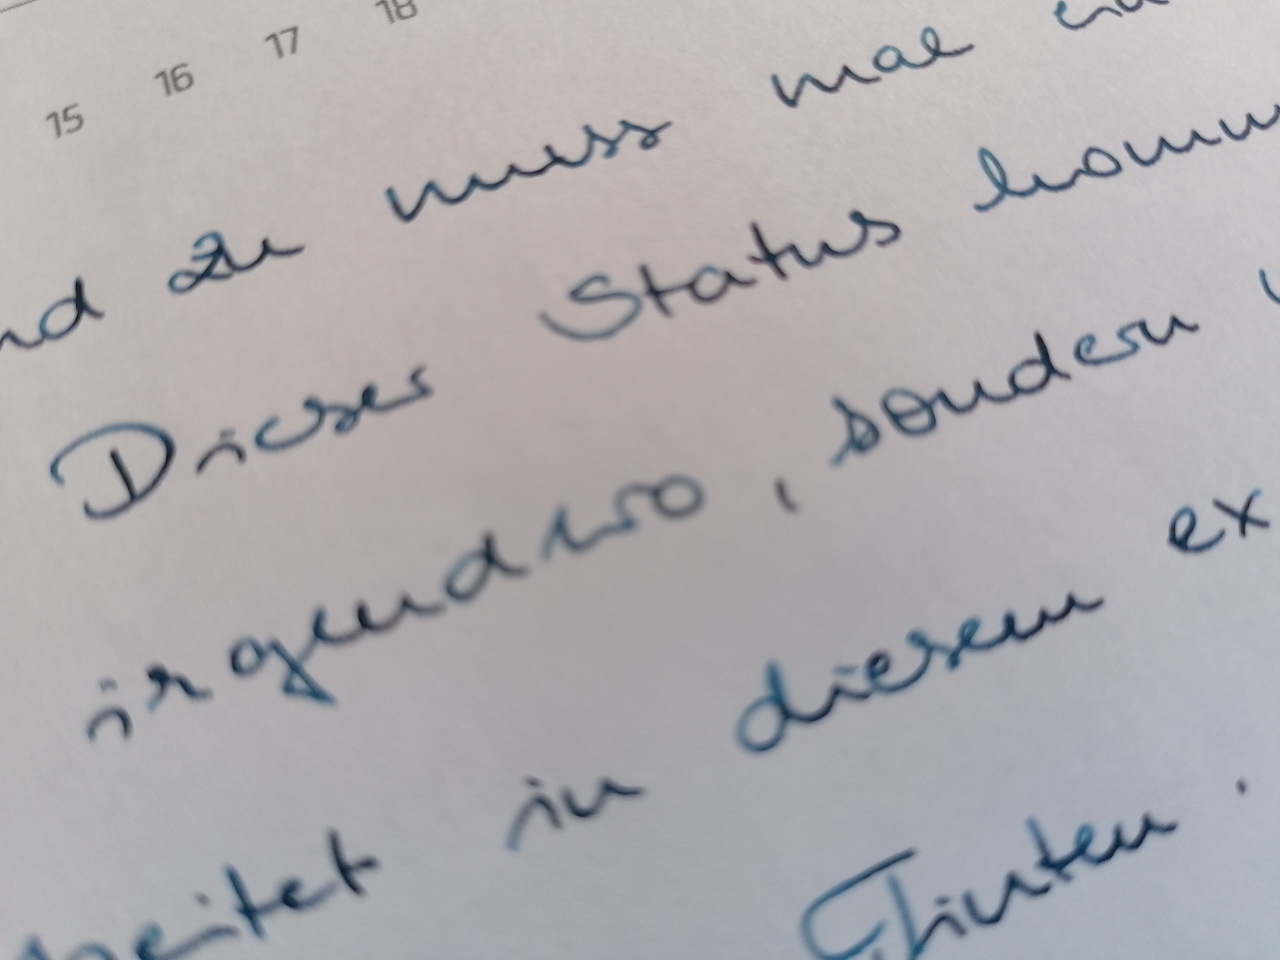 15 16 17 18
nd zu muss mal ein
Dieser Status komm
irgendwo, sondern
beitet in diesem ex
Tinten.